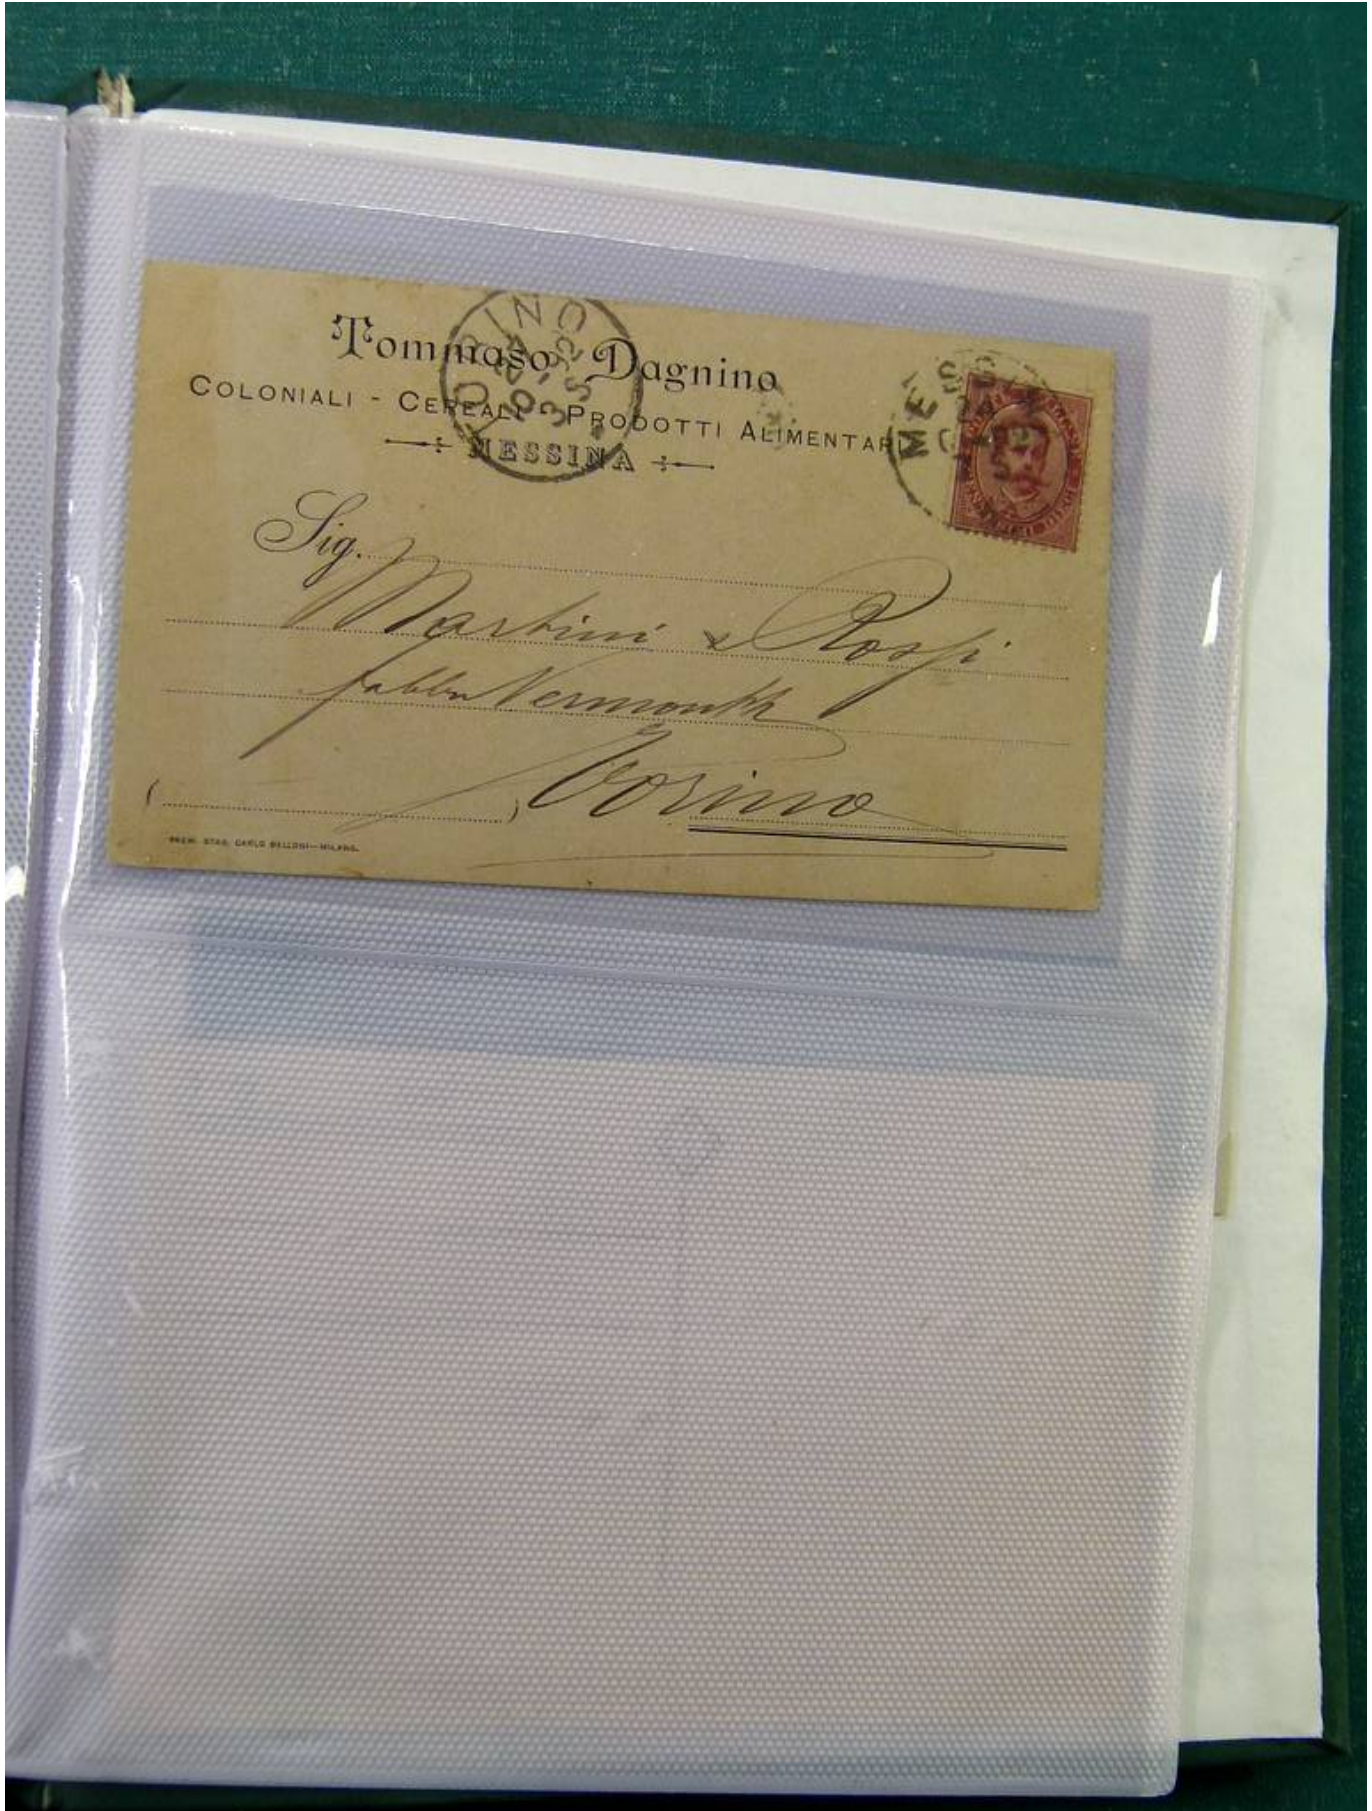 Tommaso Dagnino
COLONIALI - CEREALI - PRODOTTI ALIMENTARI
MESSINA
TORINO
MESSINA
Sig.
Martini & Rossi
fabbr Vermouth
Torino
PREM. STAB. CARLO BELLONI - MILANO.